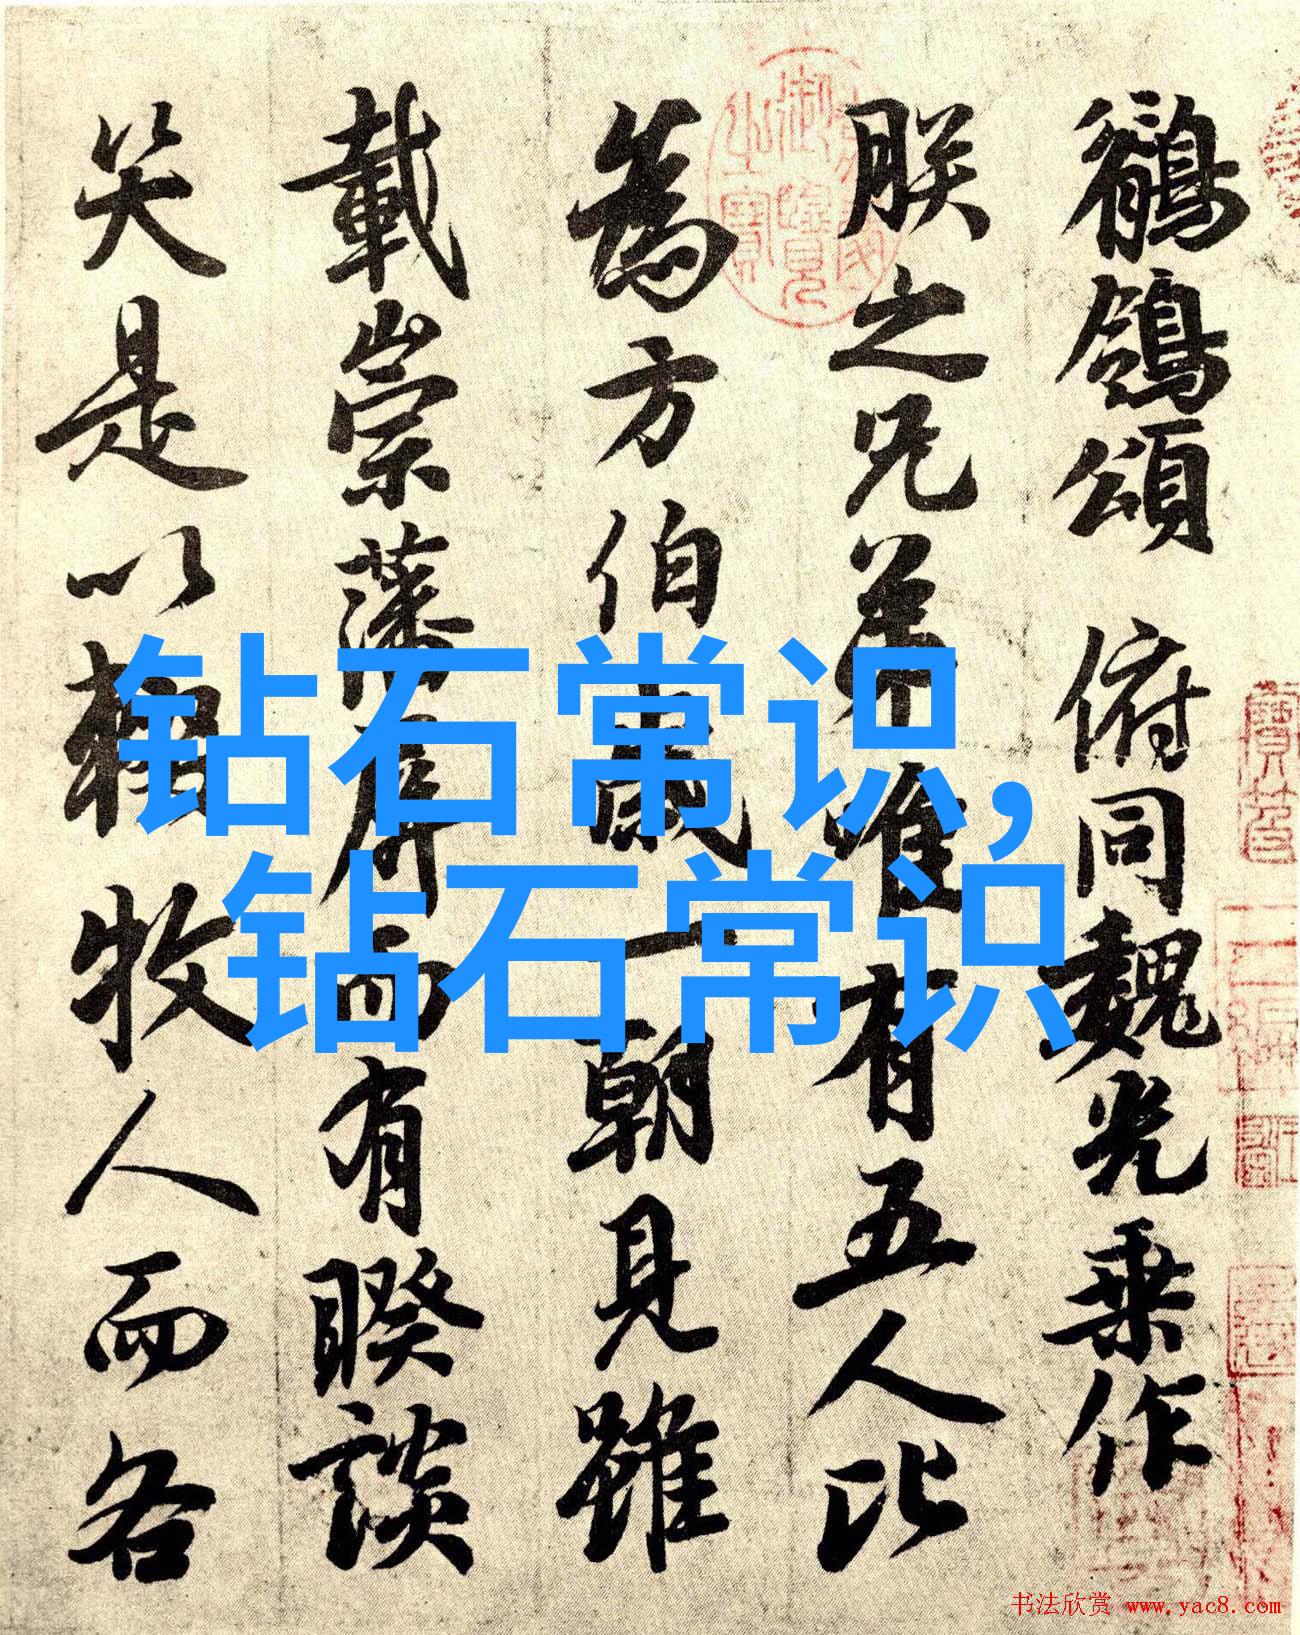 鶺鴒頌 俯同魏光乗作
朕之兄弟唯有五人比
為方伯歳一朝見雖
載崇藩屏而有睽談
笑是以輟牧人而各
钻石常识,
钻石常识
书法欣赏 www.yac8.com